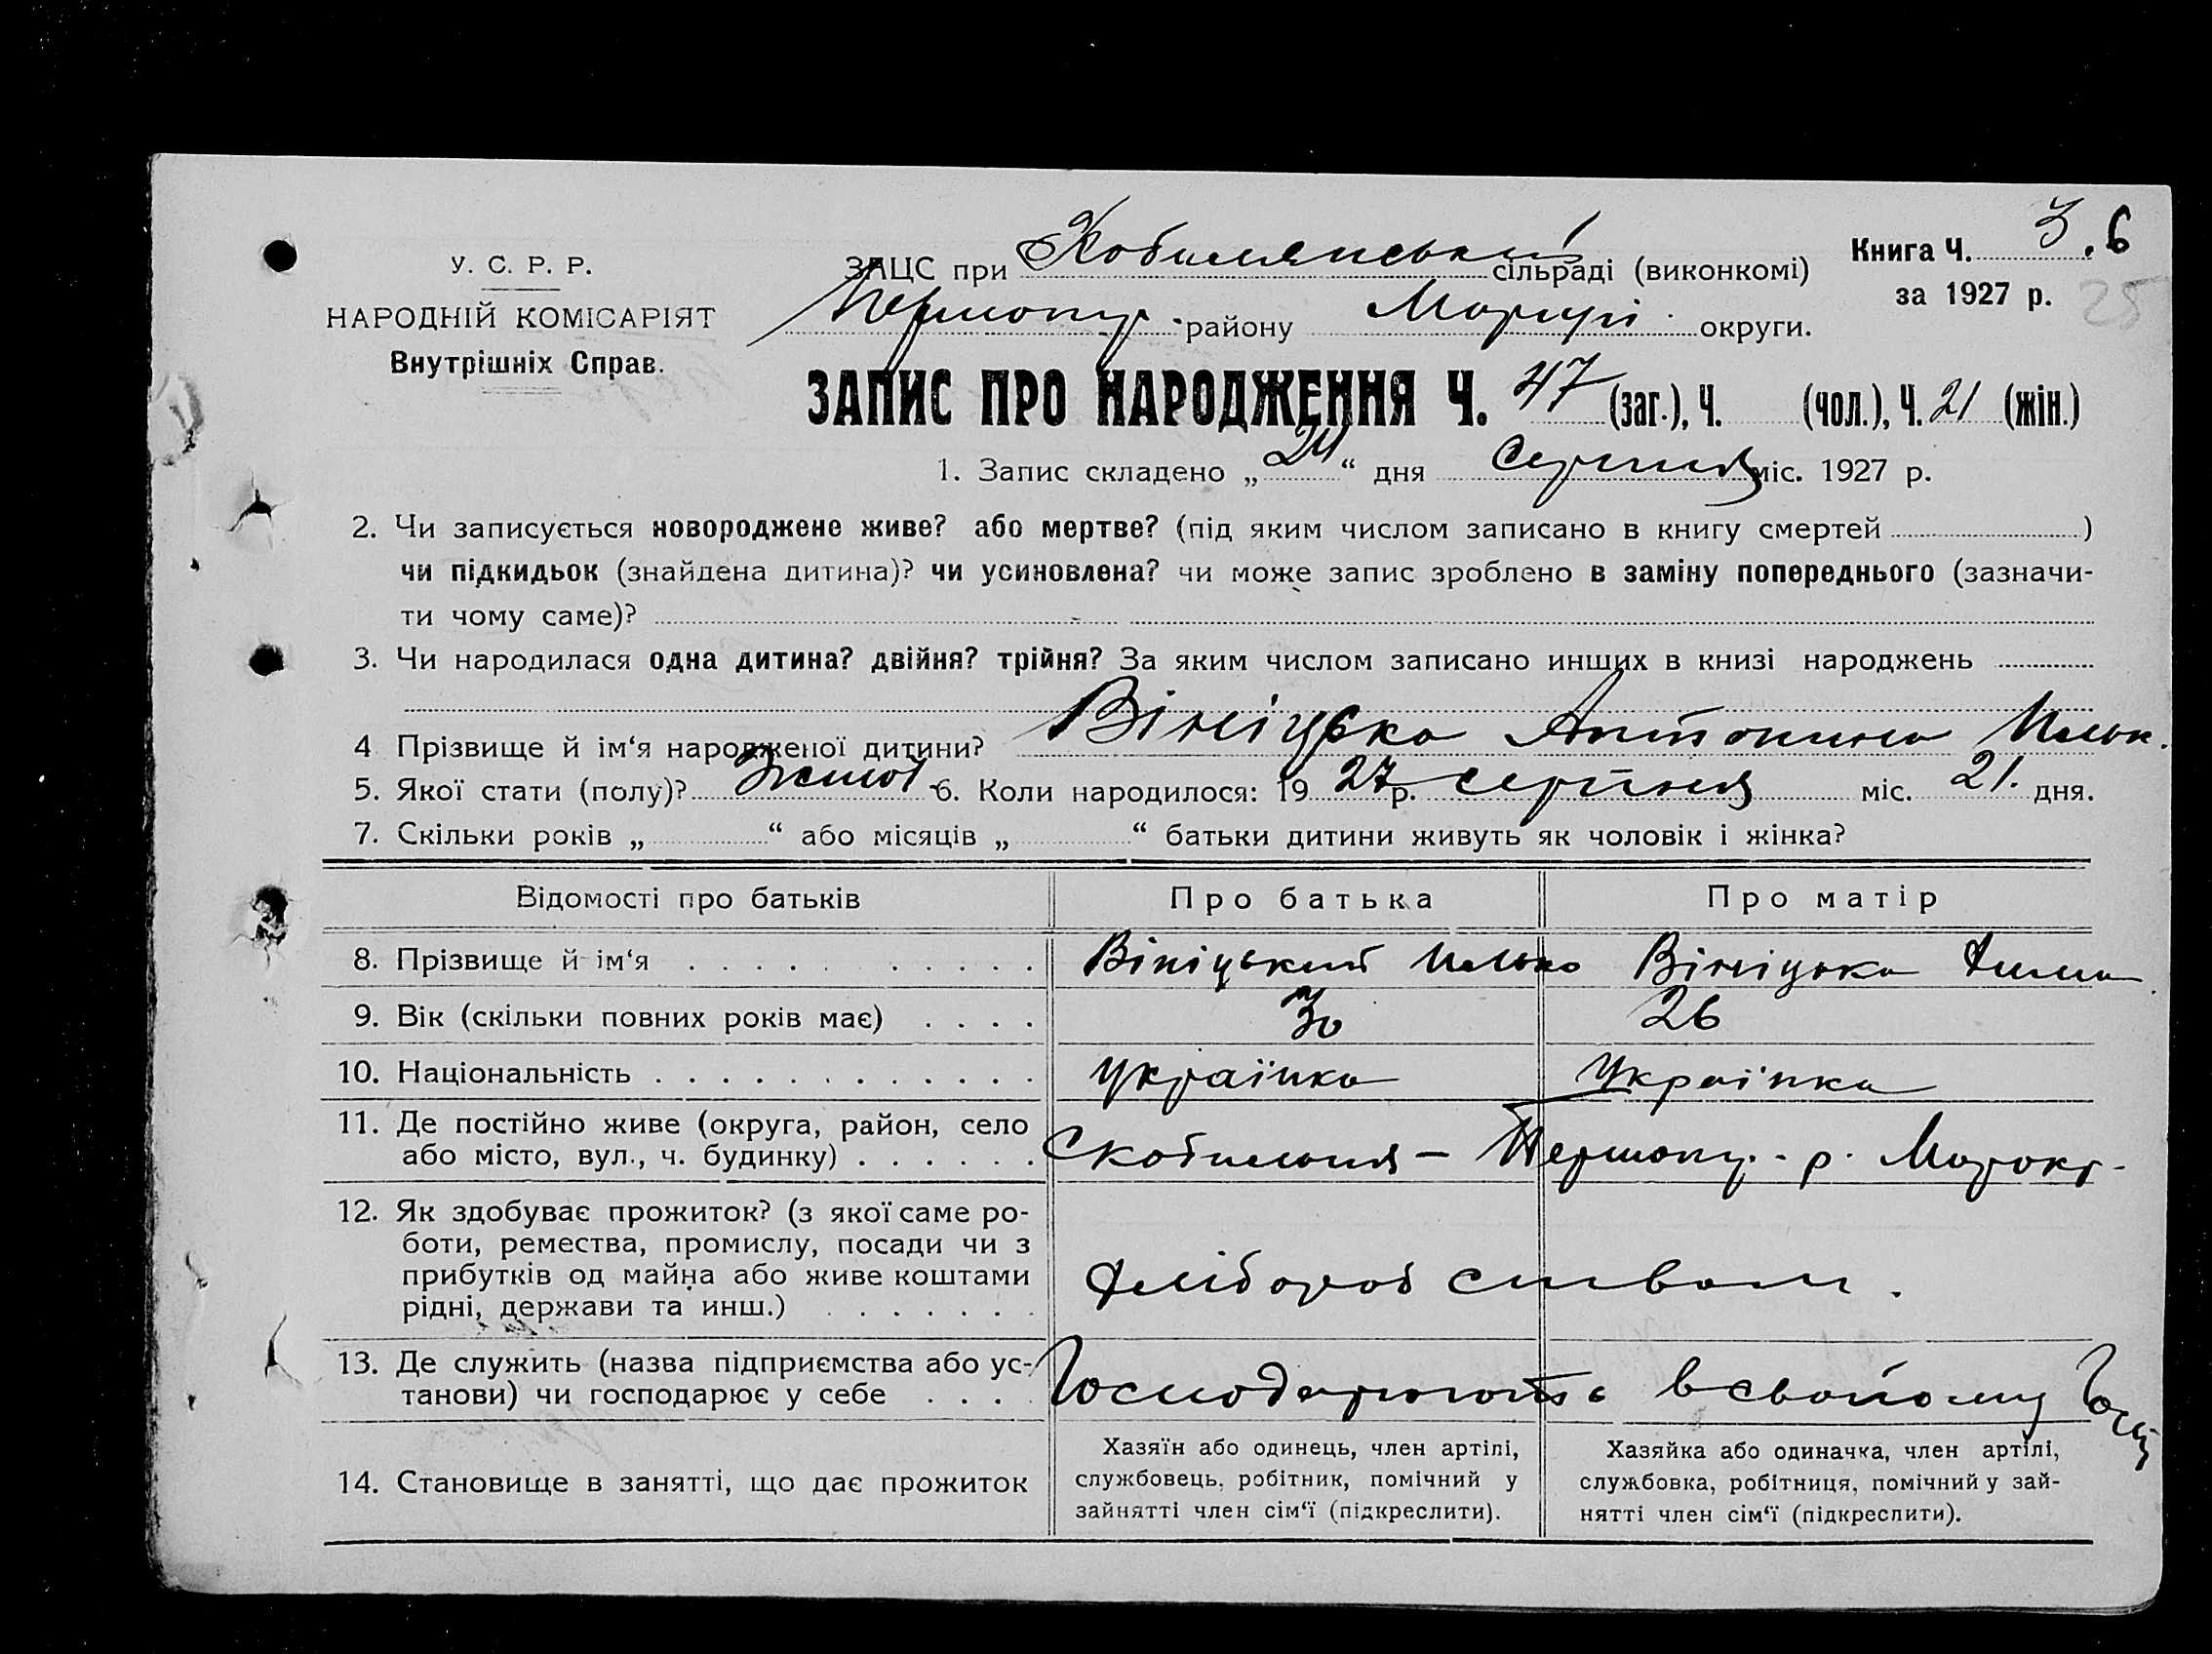 У. С. Р. Р.
НАРОДНІЙ КОМІСАРІЯТ
Внутрішніх Справ.
ЗАЦС при Кобилянській сільраді (виконкомі)
Книга Ч. 3.6
Першопр. району Марiуп. округи.
за 1927 р.
25
ЗАПИС ПРО НАРОДЖЕННЯ Ч. 47 (заг.), Ч. (чол.), Ч. 21 (жін.)
1. Запис складено „24“ дня Серпня міс. 1927 р.
2. Чи записується новороджене живе? або мертве? (під яким числом записано в книгу смертей )
чи підкидьок (знайдена дитина)? чи усиновлена? чи може запис зроблено в заміну попереднього (зазначи-
ти чому саме)?
3. Чи народилася одна дитина? двійня? трійня? За яким числом записано инших в книзі народжень
4 Прізвище й ім‘я народженої дитини? Вініцька Антонина Ильк.
5. Якої стати (полу)? Жіної 6. Коли народилося: 19 27 р. серпня міс. 21. дня.
7. Скільки років „ “ або місяців „ “ батьки дитини живуть як чоловік і жінка?
Відомості про батьків Про батька Про матір
8. Прізвище й ім‘я Вініцький Илько Вініцька Анна
9. Вік (скільки повних років має) 30 26
10. Національність українка Українка
11. Де постійно живе (округа, район, село
або місто, вул., ч. будинку) С Кобильня – Першопр. р.
12. Як здобуває прожиток? (з якої саме ро-
боти, ремества, промислу, посади чи з
прибутків од майна або живе коштами
рідні, держави та инш.) Хліборобством.
13. Де служить (назва підприємства або ус-
танови) чи господарює у себе Господарюють в свойому
14. Становище в занятті, що дає прожиток
Хазяїн або одинець, член артілі,
службовець, робітник, помічний у
зайнятті член сім‘ї (підкреслити).
Хазяйка або одиначка, член артілі,
службовка, робітниця, помічний у зай-
нятті член сім‘ї (підкреслити).